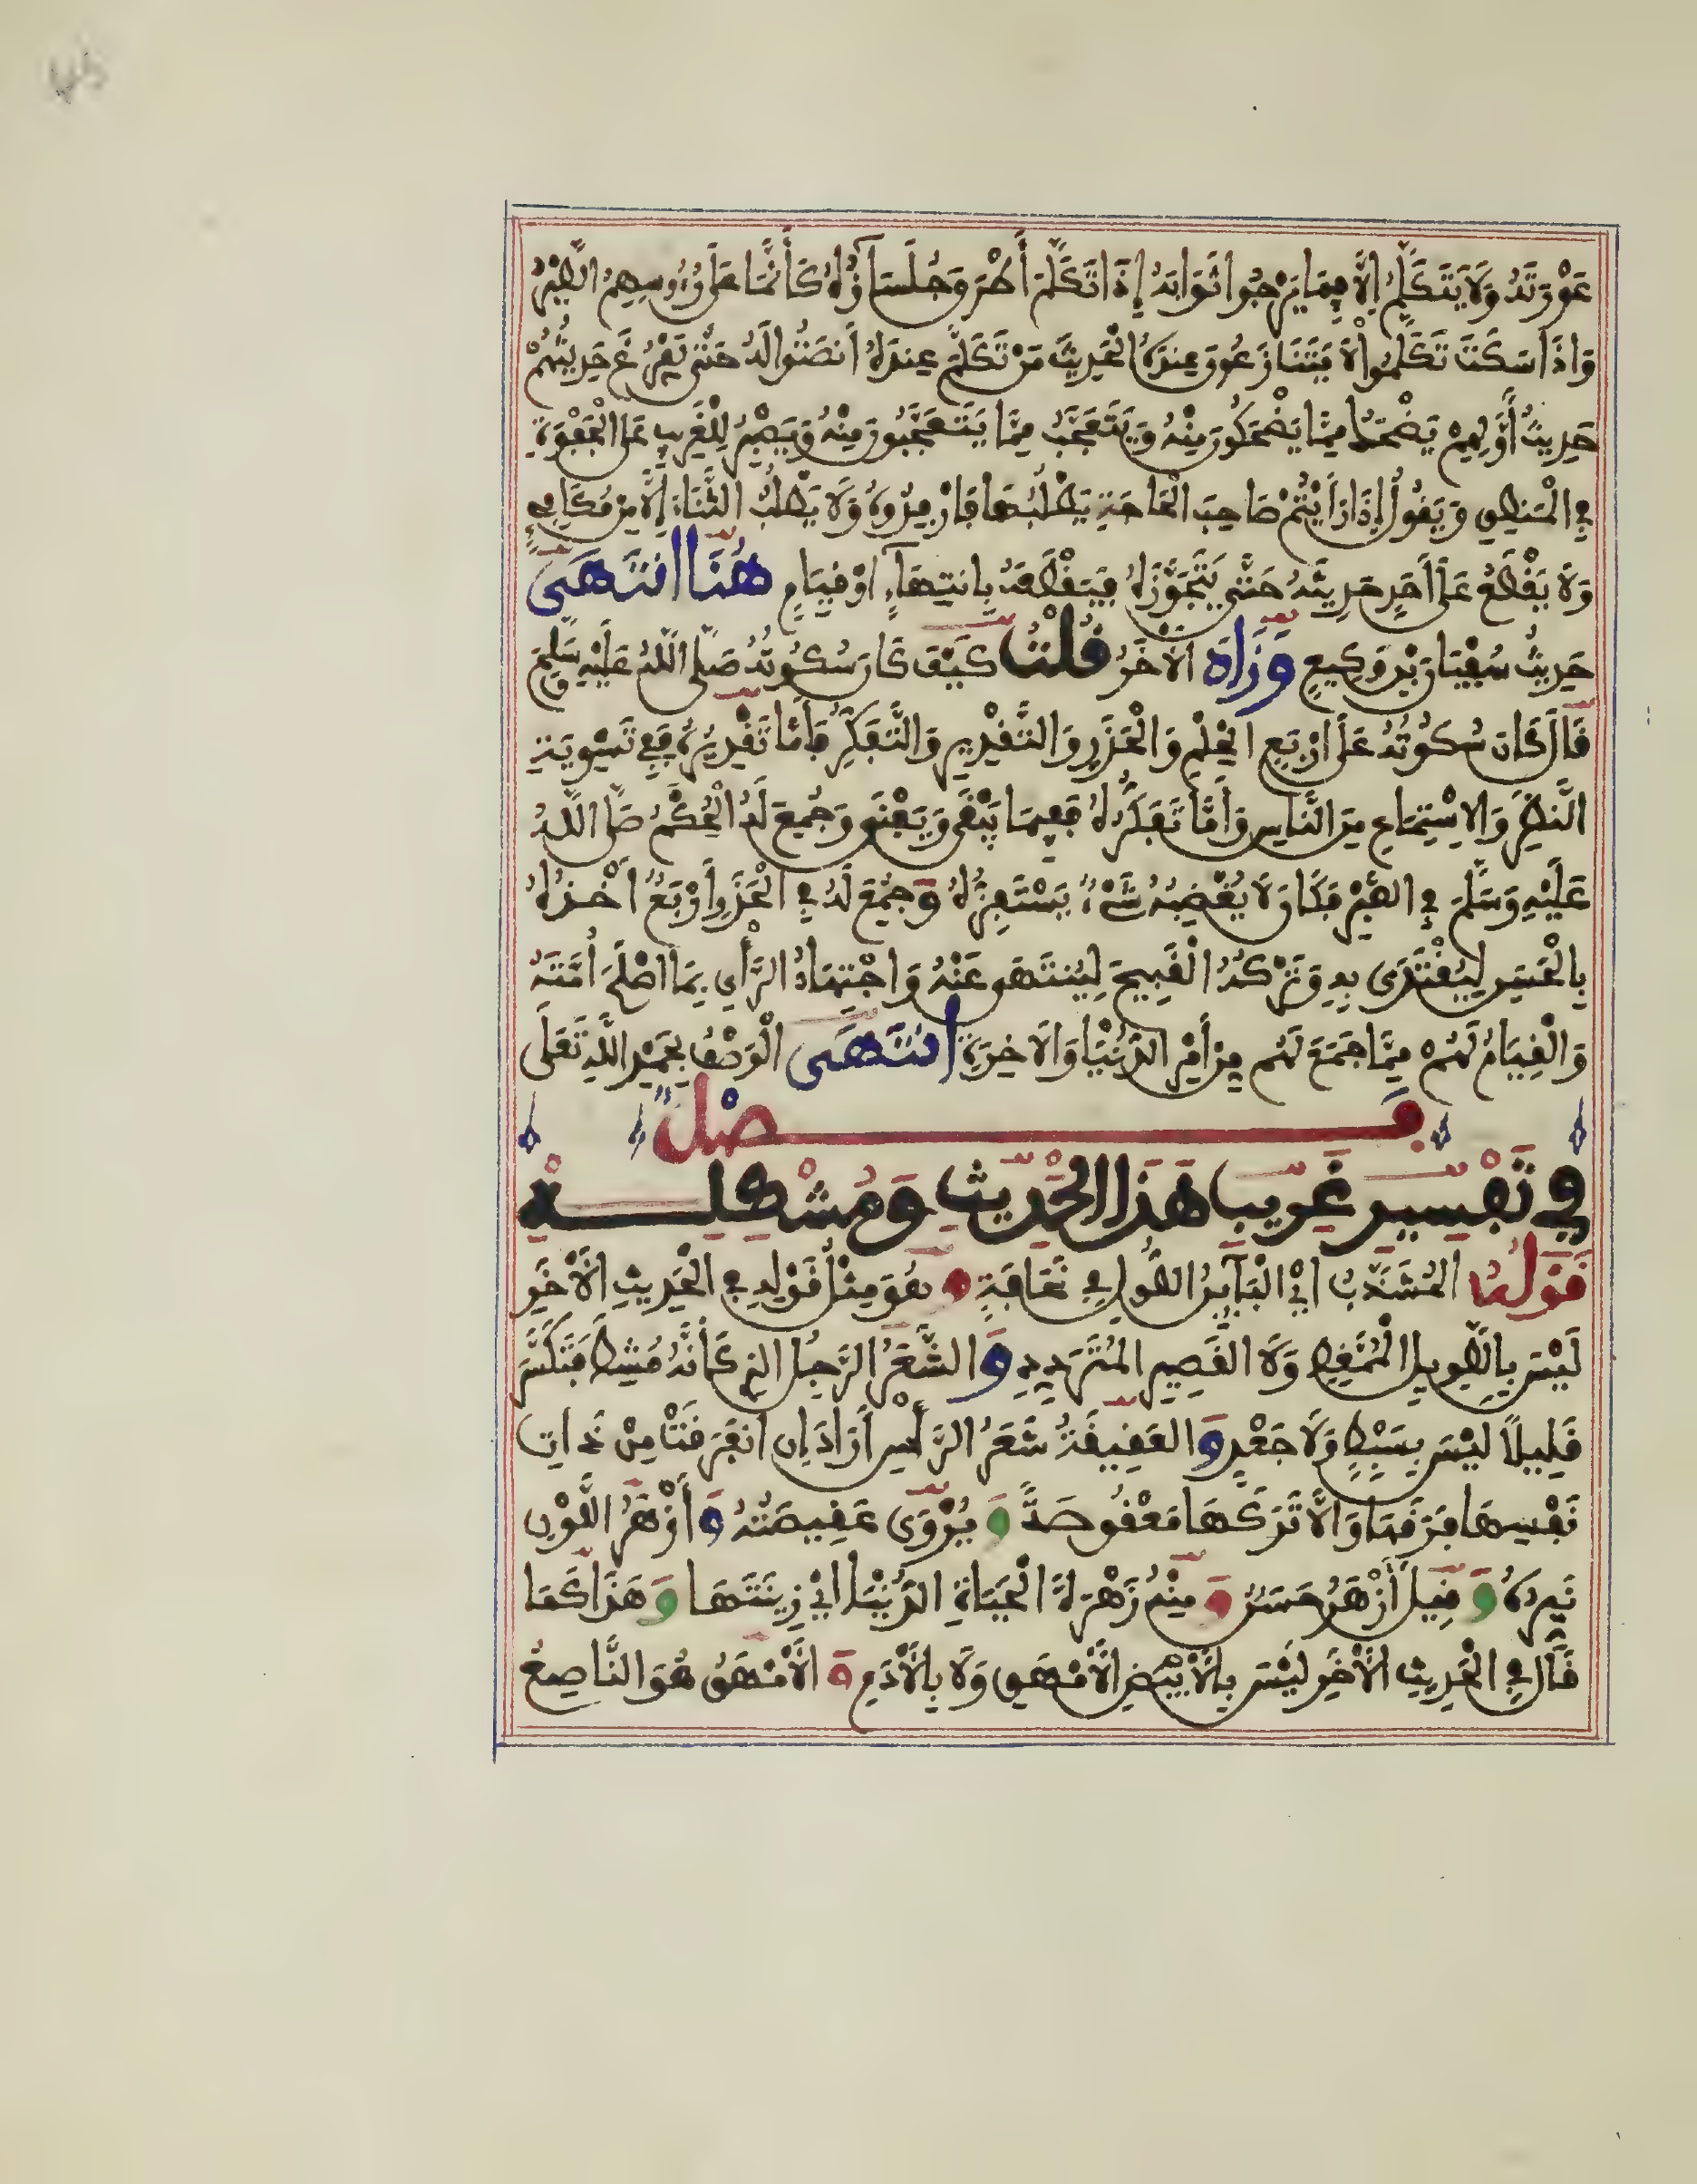 عَوْرَتَهُ وَلَا يَتَكَلَّمُ إِلَّا فِيمَا يَرْجُوا ثَوَابَهُ إِذَا تَكَلَّمَ أَطْرَقَ جُلَسَاؤُهُ كَأَنَّمَا عَلَى رُءُوسِهِمُ الطَّيْرُ
وَإِذَا سَكَتَ تَكَلَّمُوا لَا يَتَنَازَعُونَ عِنْدَهُ الْحَدِيثَ مَنْ تَكَلَّمَ عِنْدَهُ أَنْصَتُوا لَهُ حَتَّى يَفْرُغَ حَدِيثُهُمْ
حَدِيثُ أَوَّلِهِمْ يَضْحَكُ مِمَّا يَضْحَكُونَ مِنْهُ وَيَتَعَجَّبُ مِمَّا يَتَعَجَّبُونَ مِنْهُ وَيَصْبِرُ لِلْغَرِيبِ عَلَى الْجَفْوَةِ
فِي الْمَنْطِقِ وَيَقُولُ إِذَا رَأَيْتُمْ صَاحِبَ الْحَاجَةِ يَطْلُبُهَا فَأَرْفِدُوهُ وَلَا يَطْلُبُ الثَّنَاءَ إِلَّا مِنْ مُكَافِئٍ
وَلَا يَقْطَعُ عَلَى أَحَدٍ حَدِيثَهُ حَتَّى يَتَجَوَّزَهُ فَيَقْطَعَهُ بِانْتِهَاءٍ أَوْ قِيَامٍ هُنَا انْتَهَى
حَدِيثُ سُفْيَانَ بْنِ وَكِيعٍ وَزَادَ الْآخَرُ قُلْتُ كَيْفَ كَانَ سُكُوتُهُ صَلَّى اللَّهُ عَلَيْهِ وَسَلَّمَ
قَالَ كَانَ سُكُوتُهُ عَلَى أَرْبَعٍ الْحِلْمِ وَالْحَذَرِ وَالتَّقْدِيرِ وَالتَّفَكُّرِ فَأَمَّا تَقْدِيرُهُ فَفِي تَسْوِيَةِ
النَّظَرِ وَالِاسْتِمَاعِ مِنَ النَّاسِ وَأَمَّا تَفَكُّرُهُ فَفِيمَا يَبْقَى وَيَفْنَى وَجُمِعَ لَهُ الْحُكْمُ صَلَّى اللَّهُ
عَلَيْهِ وَسَلَّمَ فِي الصَّبْرِ فَكَانَ لَا يُغْضِبُهُ شَيْءٌ يَسْتَفِزُّهُ وَجُمِعَ لَهُ فِي الْحَذَرِ أَرْبَعٌ أَخْذُهُ
بِالْحَسَنِ لِيُقْتَدَى بِهِ وَتَرْكُهُ الْقَبِيحَ لِيُنْتَهَى عَنْهُ وَاجْتِهَادُ الرَّأْيِ بِمَا أَصْلَحَ أُمَّتَهُ
وَالْقِيَامُ لَهُمْ مِمَّا جَمَعَ لَهُم مِنْ أَمْرِ الدُّنْيَا وَالْآخِرَةِ انْتَهَى الْوَصْفُ بِحَمْدِ اللَّهِ تَعَلَى
فَصْلٌ
فِي تَفْسِيرِ غَرِيبِ هَذَا الْحَدِيثِ وَمُشْكِلِهِ
قَوْلُهُ الْمُشَذَّبُ أَيِ الْبَآئِنُ الطُّولِ فِي نَحَافَةٍ هُوَ مِثْلُ قَوْلِهِ فِي الْحَدِيثِ الْآخَرِ
لَيْسَ بِالطَّوِيلِ الْمُمَّغِطِ وَلَا الْقَصِيرِ الْمُتَرَدِّدِ وَالشَّعَرُ الرَّجِلُ الذِي كَأَنَّهُ مُشِطَ فَتَكَسَّرَ
قَلِيلاً لَيْسَ بِسَبِطٍ وَلَا جَعْدٍ وَالْعَقِيقَةُ شَعَرُ الرَّأْسِ أَرَادَ إِنِ انْفَرَقَتْ مِنْ ذَاتِ
نَفْسِهَا فَرَقَهَا وَإِلَّا تَرَكَهَا مَعْقُوصَةً وَيُرْوَى عَقِيصَتُهُ وَأَزْهَرُ اللَّوْنِ
نَيِّرُهُ وَقِيلَ أَزْهَرُ حَسَنٌ وَمِنْهُ زَهْرَةُ الْحَيَاةِ الدُّنْيَا أَيْ زِينَتُهَا وَهَذَا كَمَا
قَالَ فِي الْحَدِيثِ الْآخَرِ لَيْسَ بِالْأَبْيَضِ الْأَمْهَقِ وَلَا بِالْأَدَمِ الْأَمْهَقُ هُوَ النَّاصِعُ